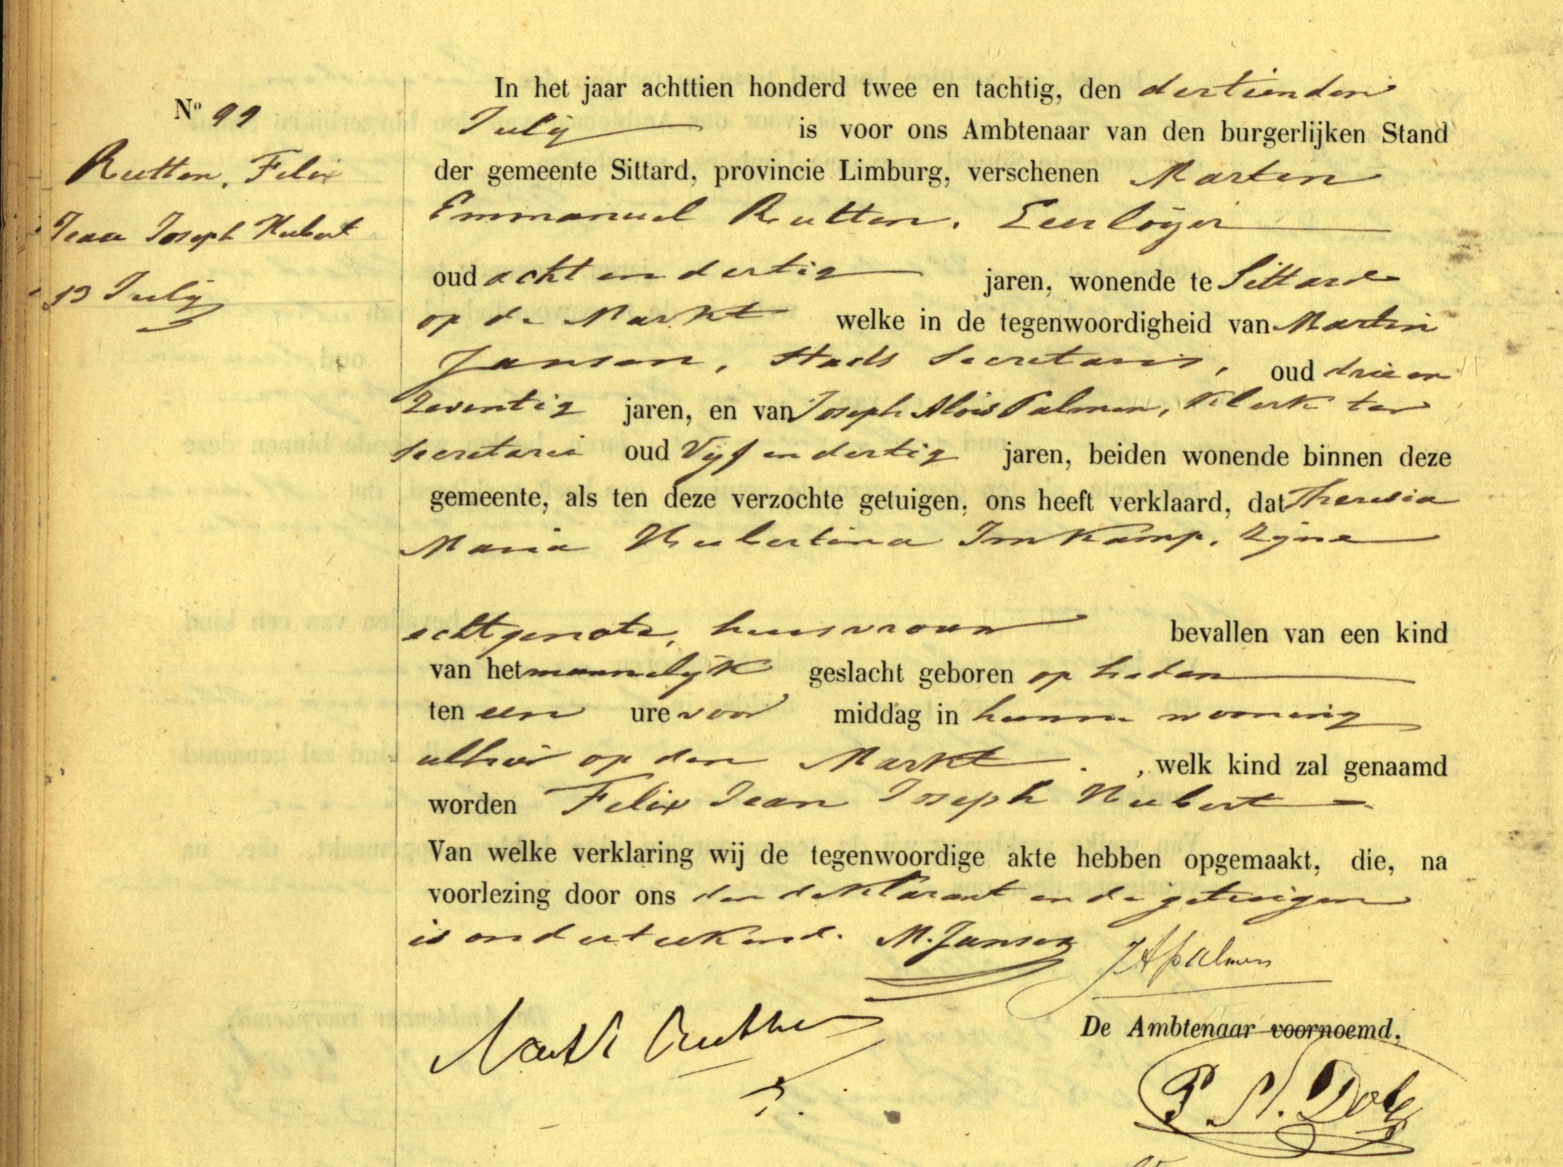 No 99
Rutten, Felix
Jean Joseph Hubert
13 July
In het jaar achttien honderd twee en tachtig, den dertienden
July is voor ons Ambtenaar van den burgerlijken Stand
der gemeente Sittard, provincie Limburg, verschenen Marten
Emmanuel Rutten,
oud acht en dertig jaren, wonende te Sittard
op de Markt welke in de tegenwoordigheid van Martin
Jansen, Stads Secretaris, oud drie en
zeventig jaren, en van Joseph Alois Palmen, Klerk ter
Secretarie oud Vijf en dertig jaren, beiden wonende binnen deze
gemeente, als ten deze verzochte getuigen, ons heeft verklaard, dat Theresia
Maria Hubertina Imkamp, zijne
echtgenote, huisvrouw bevallen van een kind
van het mannelijk geslacht geboren op heden
ten een ure voor middag in hunne woning
alhier op den Markt. , welk kind zal genaamd
worden Felix Jean Joseph Hubert
Van welke verklaring wij de tegenwoordige akte hebben opgemaakt, die, na
voorlezing door ons den deklarant en de getuigen
is onderteekend. M. Jansen JAPalmen
Rutten
De Ambtenaar voornoemd,